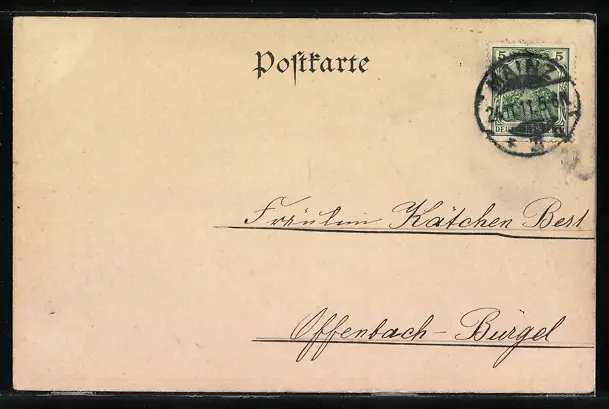 Postkarte
5 5
MAINZ
Fräulein Kätchen Best
Offenbach-Bürgel